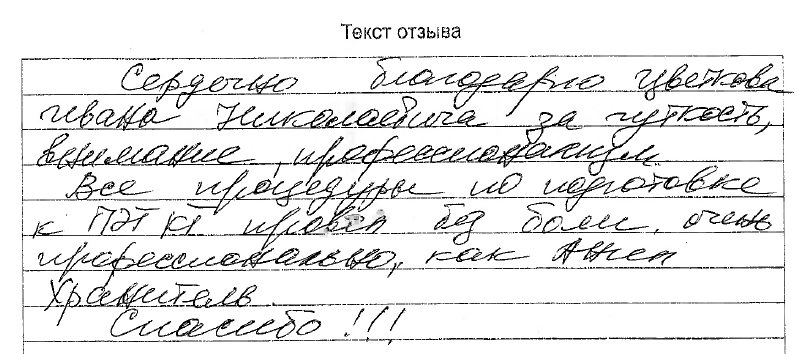 Текст отзыва
Сердечно благодарю Цветкова
Ивана Николаевича за чуткость,
внимание, профессионализм
Все процедуры по подготовке
к ПЭТ КТ провел без боли, очень
профессионально, как Ангел
Хранитель.
Спасибо!!!